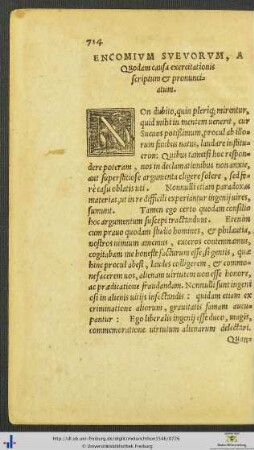 714
ENCOMIVM SVEVORVM, A
Quodam causa exercitationis
scriptum & pronunci-
atum.
NOn dubito, quin pleriq; mirentur,
quid mihi in mentem venerit, cur
Sueuos potissimum, procul ab illo-
rum finibus natus, laudare institue-
rim: Quibus tametsi hoc respon-
dere poteram, in declamationibus non anxie,
aut superstitiose argumenta eligere solere, sed fe-
rè casu oblatis uti. Nonnulli etiam paradoxas
materias, ut in re difficili experiantur ingenij uires,
sumunt. Tamen ego certo quodam consilio
hoc argumentum suscepi tractandum. Etenim
cum prauo quodam studio homines, & philautia,
nostros nimium amemus, exteros contemnamus,
cogitabam me honeste facturum esse, si gentis, quæ
hinc procul abest, laudes colligerem, & commo-
nefacerem uos, alienam uirtutem non esse honore,
ac prædicatione fraudandam. Nonnulli sunt ingeni
est in alienis uitijs insectandis: quidam etiam ex
criminatione aliorum, grauitatis famam aucu-
pantur: Ego liberalis ingenij esse duco, magis,
commemoratione uirtutum alienarum delectari.
Quan=
http://dl.ub.uni-freiburg.de/diglit/melanchthon1546/0726
© Universitätsbibliothek Freiburg